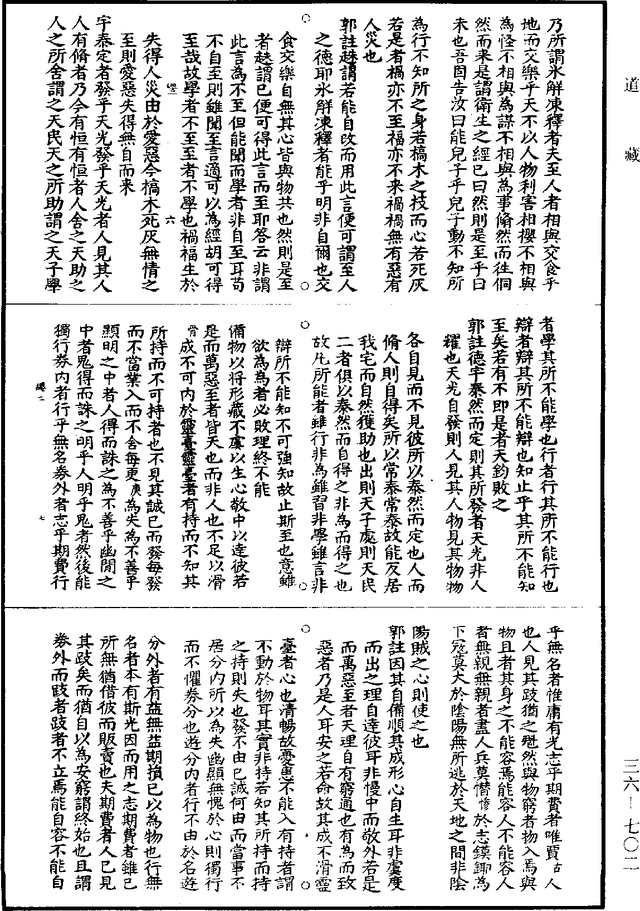 道藏
乃所謂氷解凍釋者夫至人者相與交食乎
地而交樂乎天不以人物利害相攖不相與
為怪不相與為謀不相與為事翛然而往侗
然而来是謂衛生之經已曰然則是至乎曰
未也吾固告汝曰能兒子乎兒子動不知所
為行不知所之身若槁木之枝而心若死灰
若是者禍亦不至福亦不来禍福無有惡有
人災也
郭註趎謂若能自改而用此言便可謂至人
之德耶氷解凍釋者能乎明非自爾也交
食交樂自無其心皆與物共也然則是至
者趎謂已便可得此言而至耶答云非謂
此言為不至但能聞而學者非自至耳苟
不自至則雖聞至言適可以為經胡可得
至哉故學者不至至者不學也禍福生於
失得人災由於愛惡今槁木死灰無情之
至則愛惡失得無自而来
宇泰定者發乎天光發乎天光者人見其人
人有脩者乃今有恒有恒者人舍之天助之
人之所舍謂之天民天之所助謂之天子學
六
者學其所不能學也行者行其所不能行也
辯者辯其所不能辯也知止乎其所不能知
至矣若有不即是者天鈞敗之
郭註德宇泰然而定則其所發者天光非人
耀也天光自發則人見其人物見其物物
各自見而不見彼所以泰然而定也人而
脩人則自得矣所以常泰常泰故能反居
我宅而自然獲助也出則天子處則天民
二者俱以泰然而自得之非為而得之也
故凡所能者雖行非為雖習非學雖言非
辯所不能知不可強知故止斯至也意雖
欲為為者必敗理終不能
備物以將形藏不虞以生心敬中以達彼若
是而萬惡至者皆天也而非人也不足以滑
成不可内於靈臺靈臺者有持而不知其
所持而不可持者也不見其誠已而發每發
而不當業入而不舍每更為失為不善乎
顯明之中者人得而誅之為不善乎幽闇之
中者鬼得而誅之明乎人明乎鬼者然後能
獨行券内者行乎無名券外者志乎期費行
七
乎無名者惟庸有光志乎期費者唯賈人
也人見其跂猶之魁然與物窮者物入焉與
物且者其身之不能容焉能容人不能容人
者無親無親者盡人兵莫憯於志鏌鋣為
下冠莫大於陰陽無所逃於天地之間非陰
陽賊之心則使之也
郭註因其自備順其成形心自生耳非虞度
而出之理自達彼耳非慢中而敬外若是
而萬惡至者天理自有窮通也有為而致
惡者乃是人耳安之若命故其成不滑靈
臺者心也清暢故憂患不能入有持者謂
不動於物耳其實非持若知其所持而持
之持則失也發不由已誠何由而當事不
居分内所以為失幽顯無愧於心則獨行
而不懼券分也遊分内者行不由於名遊
分外者有益無益期損已以為物也行無
名者本有斯光因而用之志期費者雖已
所無猶借彼而販賣也夫期費者人已見
其跂矣而猶自以為安窮謂終始也且謂
券外而跂者跂者不立焉能自容不能自
三六—七〇二